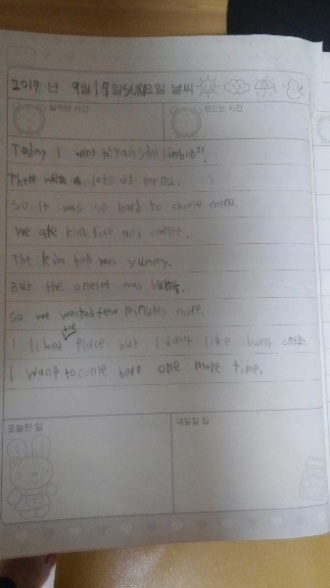 2017 년 9월 17일 SUN요일 날씨
일어난 시간 잠드는 시간
Today I went to
There were lots of menu.
So It was so hard to choose menu.
We ate and
The kim bob was yummy.
But the omelet was
So we waited few minutes more.
I liked the Place but I don't like burn
I want to come here one more time.
오늘한 일 내일할 일